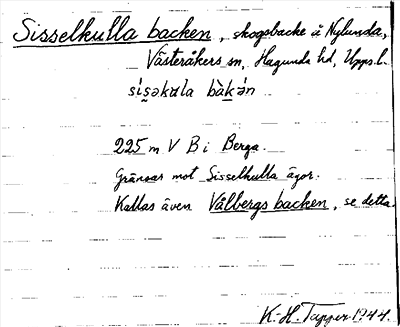 Sisselkulla backen, skogsbacke å Nylunda,
Västeråkers sn, Hagunda hd, Upps. l.
sìs̯əkɯla bàk̯ə̀n
225 m V B i Berga.
Gränsar mot Sisselkulla ägor.
Kallas även Vålbergs backen, se detta.
K-H. Tapper 1944.